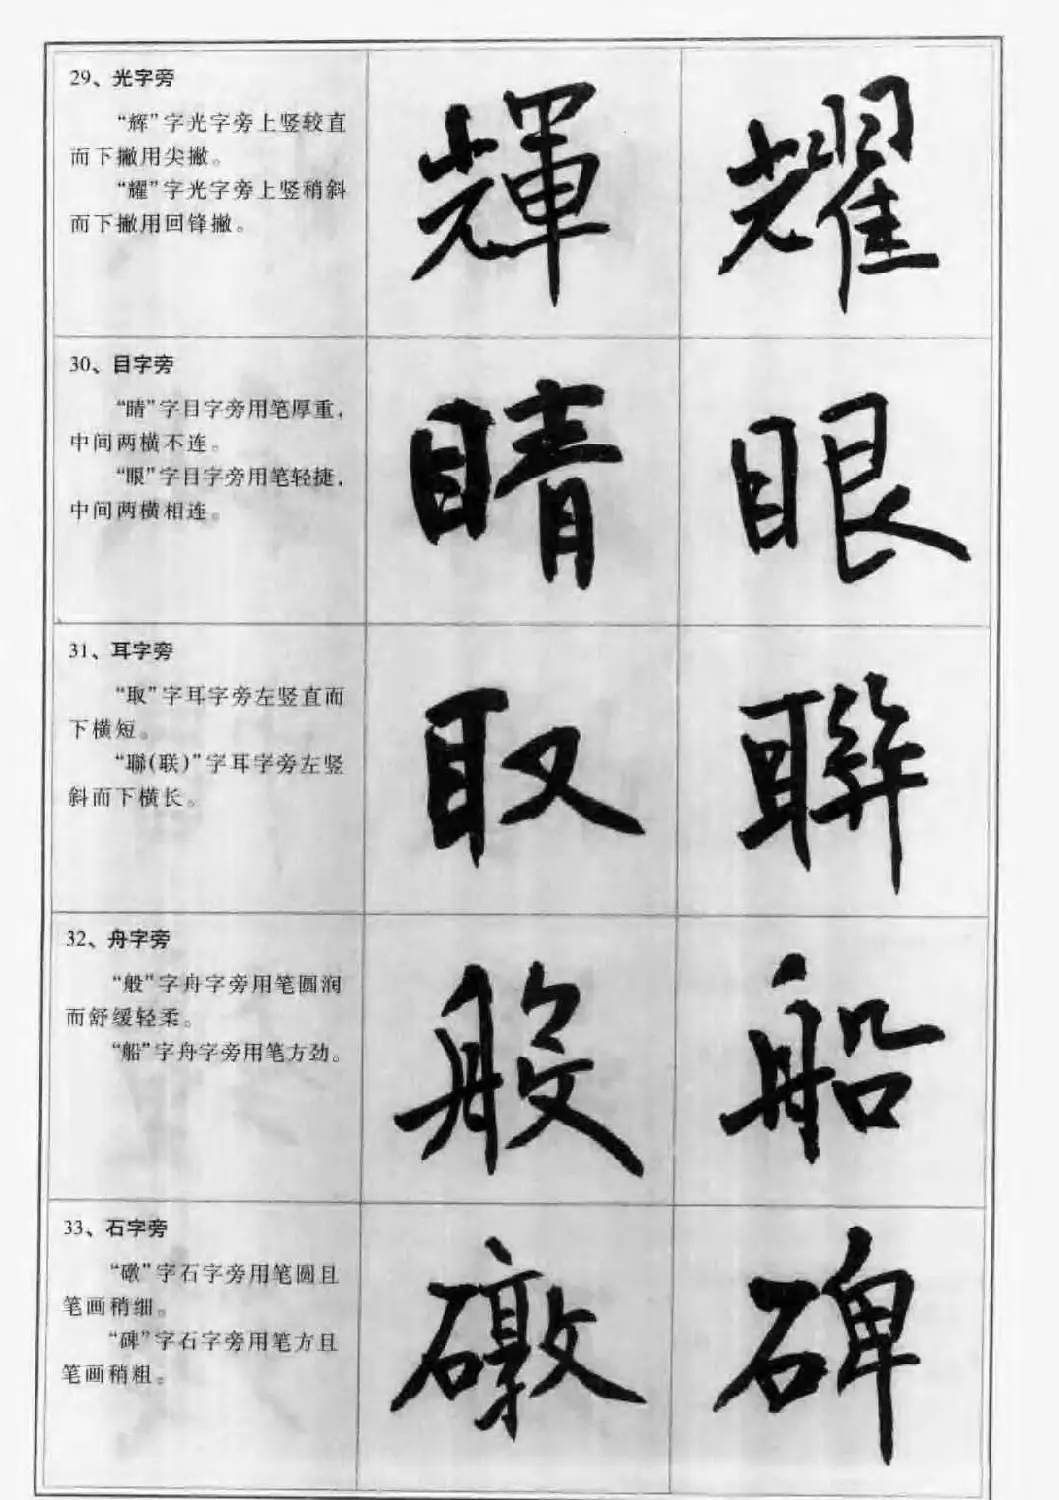 29、光字旁
“辉”字光字旁上竖较直
而下撇用尖撇。
“耀”字光字旁上竖稍斜
而下撇用回锋撇。
輝 耀
30、目字旁
“睛”字目字旁用笔厚重，
中间两横不连。
“眼”字目字旁用笔轻捷，
中间两横相连。
睛 眼
31、耳字旁
“取”字耳字旁左竖直而
下横短。
“聯(联)”字耳字旁左竖
斜而下横长。
取 聯
32、舟字旁
“般”字舟字旁用笔圆润
而舒缓轻柔。
“船”字舟字旁用笔方劲。
般 船
33、石字旁
“礅”字石字旁用笔圆且
笔画稍细。
“碑”字石字旁用笔方且
笔画稍粗。
礅 碑